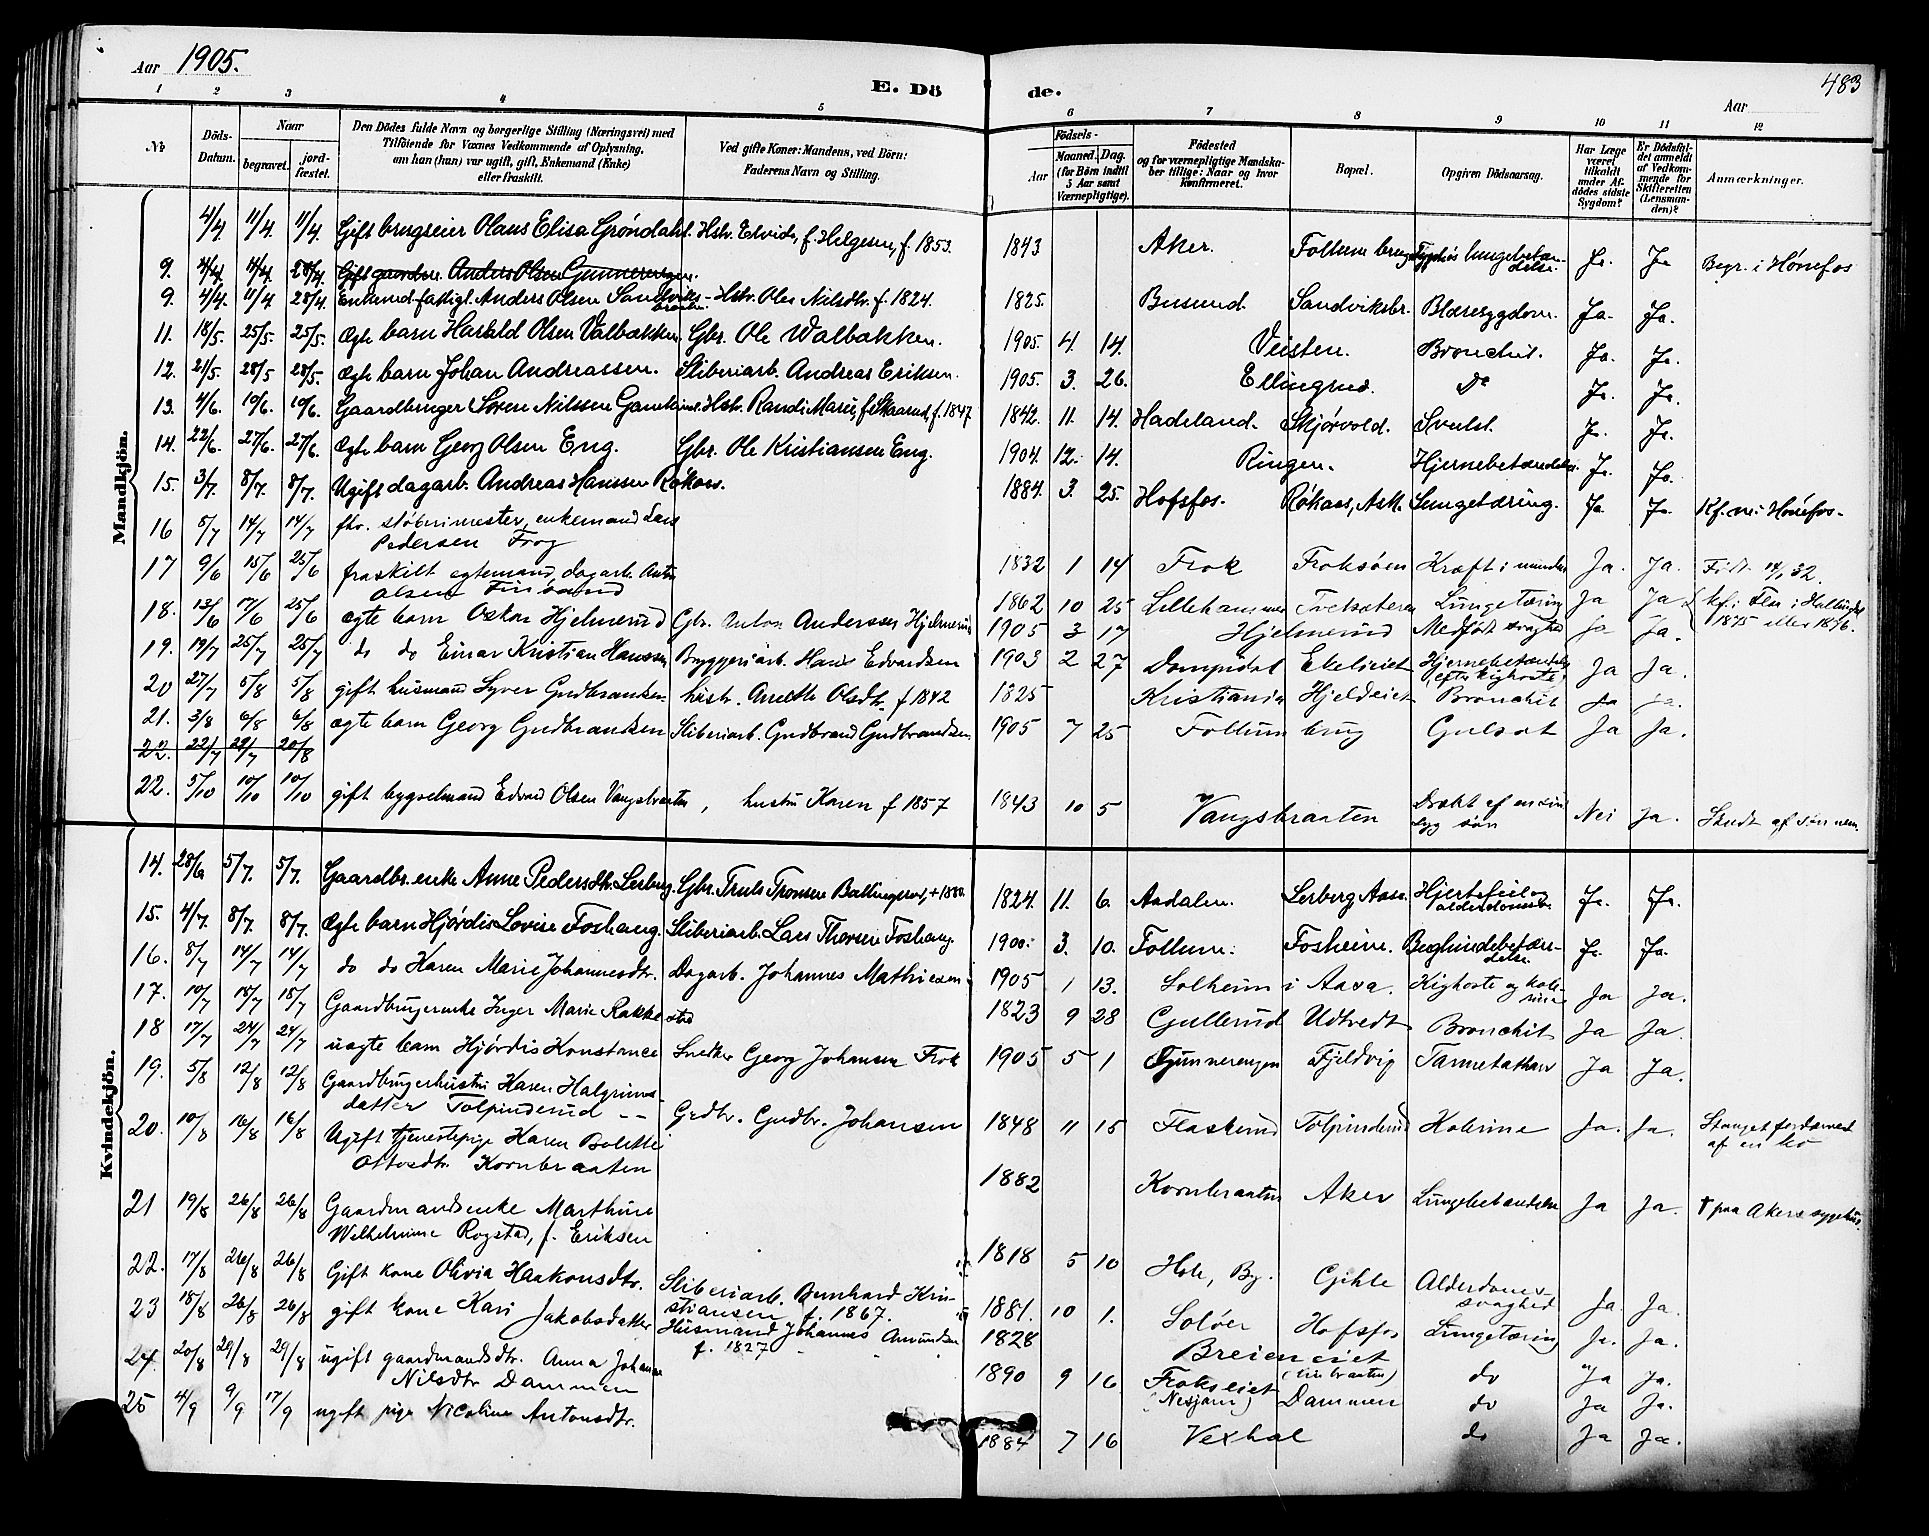 Aar 1905.
E. Dö de.
Aar 483
1 2 3 4 5 6 7 8 9 10 11 12
No
Döds-Datum.
Naar
begravet.
jord-fæstet.
Den Dödes fulde Navn og borgerlige Stilling (Næringsvei) med
Tilföiende for Vaxnes Vedkommende af Oplysning,
om han (hun) var ugift, gift, Enkemand (Enke)
eller fraskilt.
Ved gifte Koner: Mandens, ved Börn:
Faderens Navn og Stilling.
Födsels-
Aar
Maaned. Dag.
(for Börn indtil
5 Aar samt
Værnepligtige).
Födested
og for værnepligtige Mandska-
ber tillige: Naar og hvor
Konfirmeret.
Bopæl.
Opgiven Dödsaarsag.
Har Læge
været
tilkaldt
under Af-
dödes sidste
Sygdom?
Er Dödsfal-
det anmeldt
af Vedkom-
mende for
Skifteretten
(Lensman-
den)?
Anmærkninger.
Mandkjön.
4/4. 11/4. 11/4. Gift brugseier Olaus Elisa Grøndahl. Hstr. Elvida, f. Helgesen, f. 1853. 1843 Aker. Follum brug lungebetæn-
delse. Ja. Ja Begr. i Hønefos
9. 4/4 11/4 28/4. Gift gaardbr. Anders Olsen Gunnerengen.
9. 4/4. 11/4 28/4. Enkemd. fattigl. Anders Olsen Sandviks-
braaten Hstr. Olea Nilsdtr. f. 1824. 1825. Busund. Sandviksbr. Blæresygdom. Ja. Ja.
11. 18/5. 25/5. 25/5. Ægte barn Harald Olsen Valbakken. Gbr. Ole Walbakken. 1905. 4. 14. Veisten. Bronchit. Ja. Ja.
12. 21/5. 28/5 28/5. Ægte barn Johan Andreassen. Sliberiarb. Andreas Eriksen. 1905. 3. 26. Ellingrud. do Ja. Ja.
13. 4/6. 10/6. 10/6. Gaardbruger Søren Nilssen Hstr. Randi Marie, f. Skaarud, f. 1847 1842. 11. 14. Hadeland. Skjørvold. Svulst. Ja. Ja.
14. 22/6. 27/6. 27/6. Ægte barn Georg Olsen Eng. Gbr. Ole Kristiansen Eng. 1904. 12. 14. Ringen. Hjernebetændelse. Ja. Ja.
15. 3/7. 8/7. 8/7. Ugift dagarb. Andreas Hanssen Røkaas. 1884. 3. 25. Hofsfos. Røkaas, Ask. Lungetæring. Ja. Ja. Kf. Hønefos.
16 5/7 14/7 14/7 fhv. støberimester, enkemand Lars
Pedersen Frog 1832 1 14 Frok Froksøen Kræft i munden Ja. Ja. Født 14/1 32.
17 9/6 15/6 25/6 fraskilt egtemand, dagarb. Anton
Olsen 1862 10 25 Lillehammer Lungetæring Ja Ja. kf. i Flaa i Hallingdal
1875 eller 1876.
18. 13/6 17/6 25/6 ægte barn Oskar Hjelmerud Gbr. Anton Anderssen Hjelmerud 1905 3 17 Hjelmerud Medfødt svaghed Ja Ja.
19. 19/7 25/7 25/7 do do Einar Kristian Hanssen Bryggeriarb. Hans Edvardsen 1903 2 27 Dompidal Ekelieiet Hjernebetændelse
efter kighoste Ja Ja.
20 27/7 5/8 5/8 gift husmand Syver Gudbrandsen hustr. Anette Olsdtr. f. 1842 1825 Kristiania Hjeldeiet Bronchit Ja ja.
21. 3/8 6/8 6/8 ægte barn Georg Gudbrandsen Sliberiarb. Gudbrand Gudbrandsen. 1905 7 25 Follum brug Gulsot Ja Ja.
22. 22/7 29/7 20/8
22. 5/10 10/10 10/10 gift bygselmand Edvard Olsen Vangsbraaten, hustru Karen f 1857 1843 10 5 Vangsbraaten Dræbt af en sin
syg søn Nei Ja. Skudt af søn
Kvindekjön.
14. 28/6 5/7. 5/7. Gaardbr.enke Anne Pedersdtr. Lerberg. Gbr. Truls Tromsen +1880. 1824. 11. 6. Aadalen. Lerberg Aasa. Hjertefeil og
alderdomssv. Ja. Ja.
15. 4/7. 8/7. 8/7. Ægte barn Hjørdis Lovise Foshaug. Sliberiarb. Lars Thorsen Foshaug. 1900. 3. 10. Follum. Fosheim. Beghindebetæn-
delse. Ja. Ja.
16. 8/7 14/7 14/7 do do Karen Marie Johannesdtr. Dagarb. Johannes Mathiesen. 1905 1 13. Solheim i Aasa. Kighoste og kole-
rine Ja Ja.
17. 10/7 15/7 15/7 Gaardbrugerenke Inger Marie Rakkestad 1823 9 28 Gullerud Udtvedt Bronchit Ja Ja.
18 17/7 24/7 24/7 uægte barn Hjørdis Konstance Snedker Georg Johansen Frok 1905 5 1 Gunnerengen Fjeldvig Tarmekathar Ja Ja.
19. 5/8 12/8 12/8 Gaardbrugerhustru Karen Halgrims-
datter Tolpinderud -- Grdbr. Gudbr. Johansen 1848 11 15 Flaskerud Tolpinderud Kolerine Ja. Ja. Stanget fordærvet
af en ko
20. 10/8 16/8 16/8 Ugift tjenestepige Karen Bolette
Ottosdtr. Kornbraaten 1882 Kornbraaten Aker Lungebetændelse Ja Ja. † paa Akers sygehus
21 19/8 26/8 26/8 Gaardmandsenke Marthine
Wilhelmine Rogstad, f. Eriksen 1818 5 10 Hole, By. Gihle Alderdoms-
svaghed Ja Ja.
22. 17/8 26/8 26/8 Gift kone Olivia Haakonsdtr. Sliberiarb. Bernhard Kri-
stiansen f. 1867. 1881. 10 1. Soløer Hofsfos Lungetæring Ja. Ja.
23 18/8 26/8 26/8 gift kone Kari Jakobsdatter Husmand Johannes Amundsen
f. 1827 1828 Breieneiet do Ja Ja.
24. 20/8 29/8 29/8 ugift gaardmandsdtr. Anna Johanne
Nilsdtr Dammen 1890 9 16 Frokseiet
(Nesjan) Dammen do Ja Ja.
25 4/9 9/9 17/9 ugift pige Nicoline Antonsdtr. 1884 7 16 Vexhal do Ja Ja.